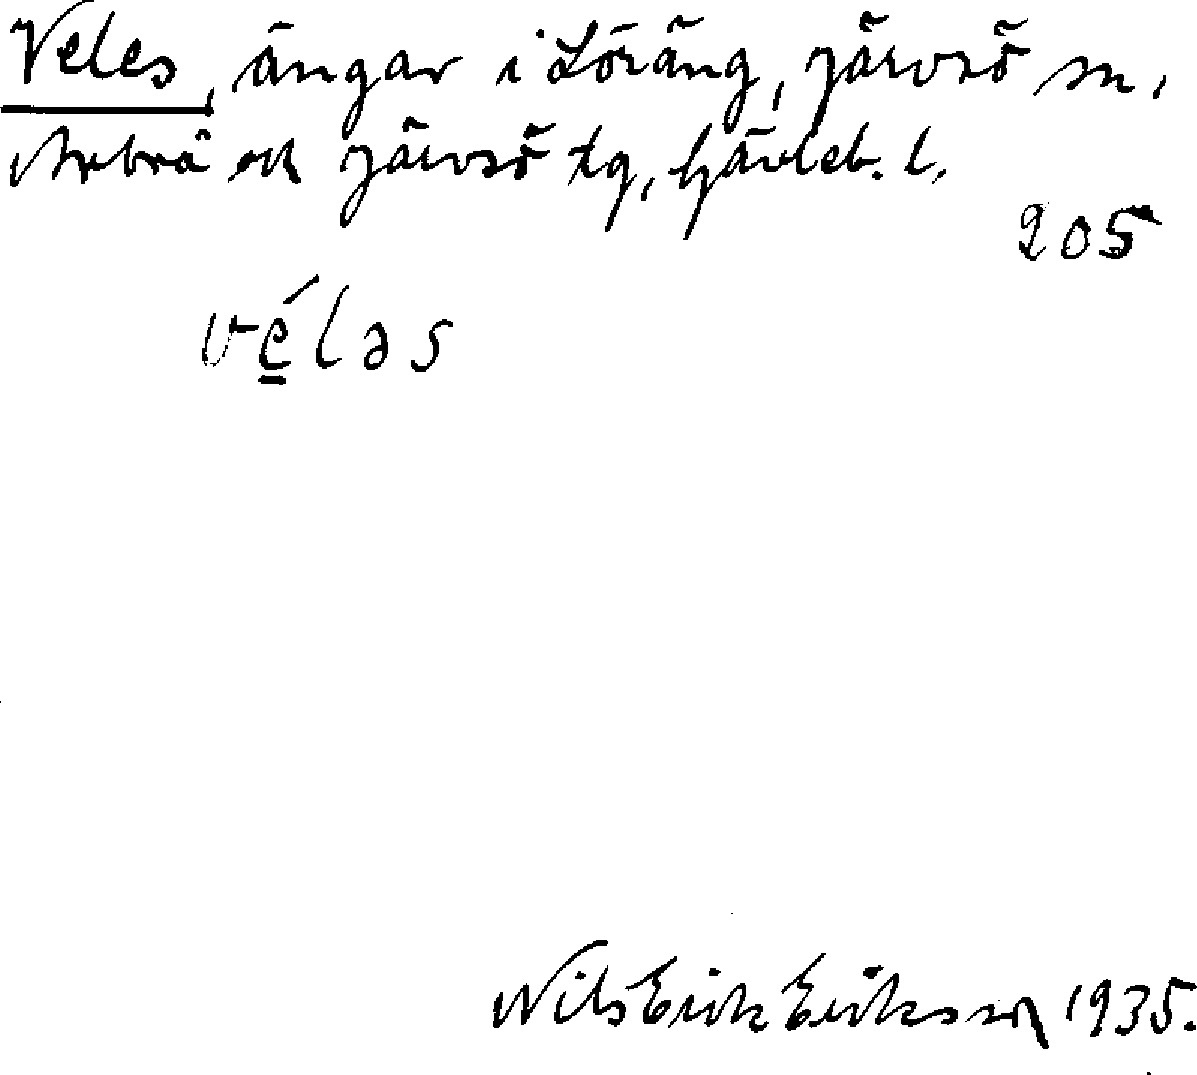 Veles, ängar i Löräng, Järvsö sn,
Arbrå och Järvsö tg, Gävleb. l.
205
vé̱ləs
Nils Erik Eriksson 1935.